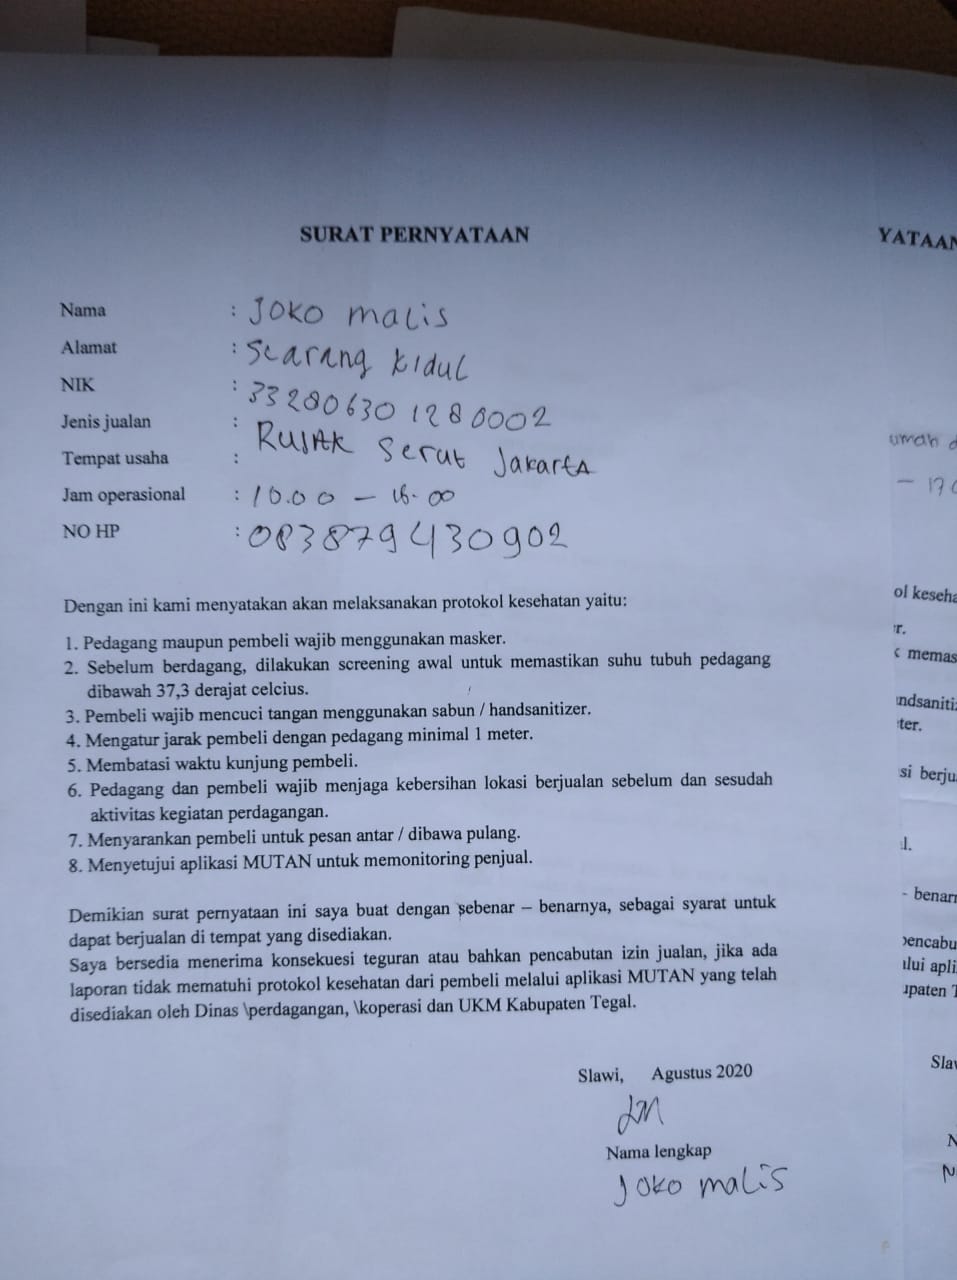 SURAT PERNYATAAN
Nama : Joko malis
Alamat : Scarang kidul
NIK : 332806301280002
Jenis jualan : RUJAK Serut Jakarta
Tempat usaha :
Jam operasional : 10.00 – 16.00
NO HP : 083879430902
Dengan ini kami menyatakan akan melaksanakan protokol kesehatan yaitu:
1. Pedagang maupun pembeli wajib menggunakan masker.
2. Sebelum berdagang, dilakukan screening awal untuk memastikan suhu tubuh pedagang
dibawah 37,3 derajat celcius.
3. Pembeli wajib mencuci tangan menggunakan sabun / handsanitizer.
4. Mengatur jarak pembeli dengan pedagang minimal 1 meter.
5. Membatasi waktu kunjung pembeli.
6. Pedagang dan pembeli wajib menjaga kebersihan lokasi berjualan sebelum dan sesudah
aktivitas kegiatan perdagangan.
7. Menyarankan pembeli untuk pesan antar / dibawa pulang.
8. Menyetujui aplikasi MUTAN untuk memonitoring penjual.
Demikian surat pernyataan ini saya buat dengan sebenar – benarnya, sebagai syarat untuk
dapat berjualan di tempat yang disediakan.
Saya bersedia menerima konsekuesi teguran atau bahkan pencabutan izin jualan, jika ada
laporan tidak mematuhi protokol kesehatan dari pembeli melalui aplikasi MUTAN yang telah
disediakan oleh Dinas \perdagangan, \koperasi dan UKM Kabupaten Tegal.
Slawi, Agustus 2020
JM
Nama lengkap
Joko malis
YATAAN
umah d
– 170
ol keseha
r.
k memas
andsanitiz
ter.
si berju
l.
– benarn
pencabu
lui apli
upaten T
Slaw
N
N